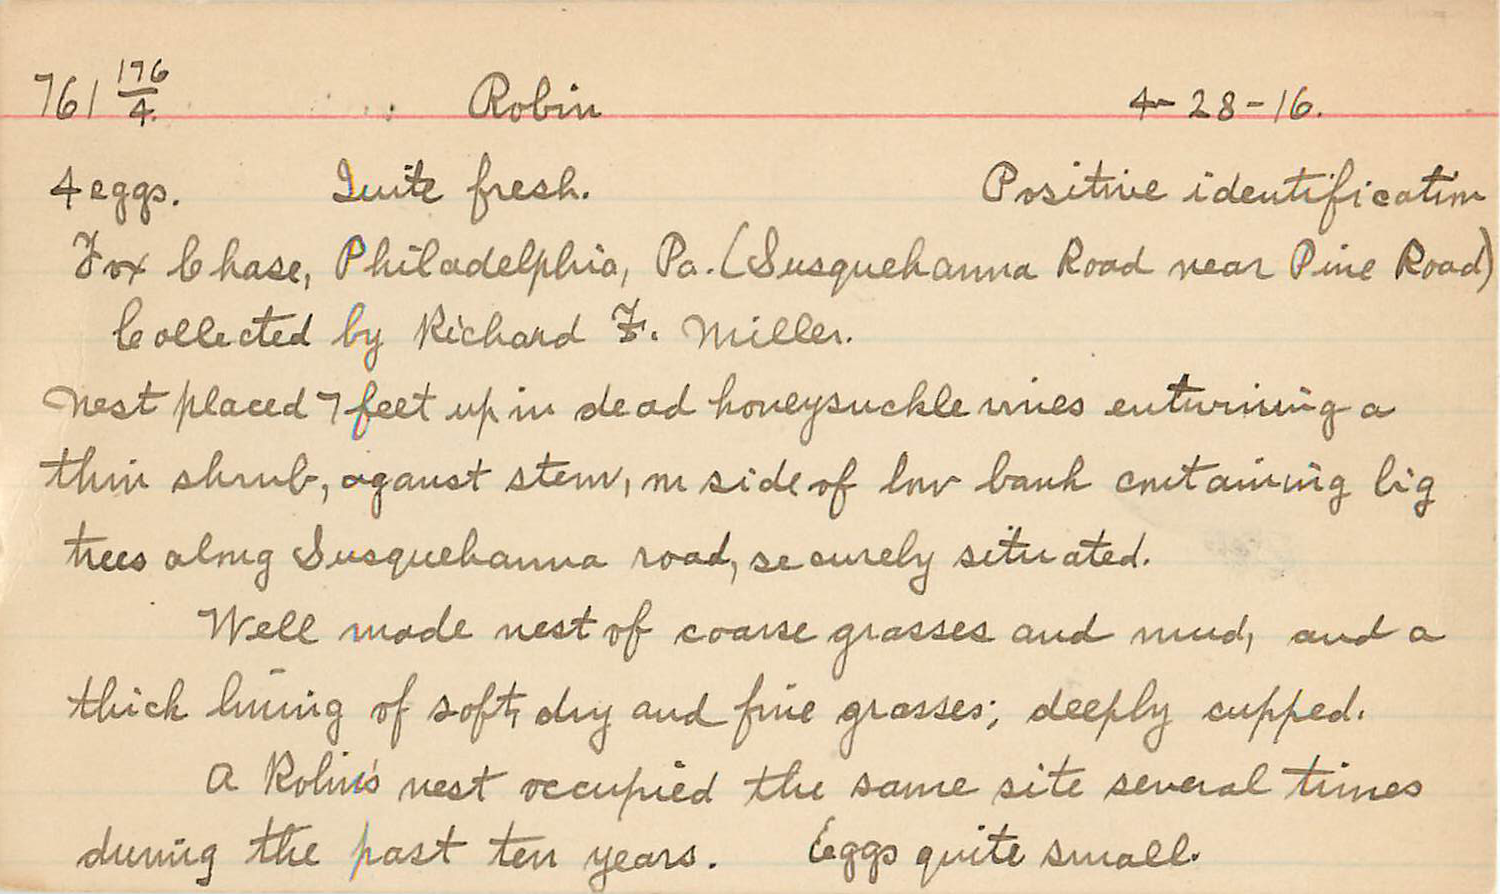 761 176/4. Robin 4-28-16.
4 eggs. Quite fresh. Positive identification
Fox Chase, Philadelphia, Pa. (Susquehanna Road near Pine Road)
Collected by Richard F. Miller.
Nest placed 7 feet up in dead honeysuckle vines entwining a
thin shrub, against stem, on side of low bank containing big
trees along Susquehanna road, securely situated.
Well made nest of coarse grasses and mud, and a
thick lining of soft, dry and fine grasses; deeply cupped.
A Robin's nest occupied the same site several times
during the past ten years. Eggs quite small.